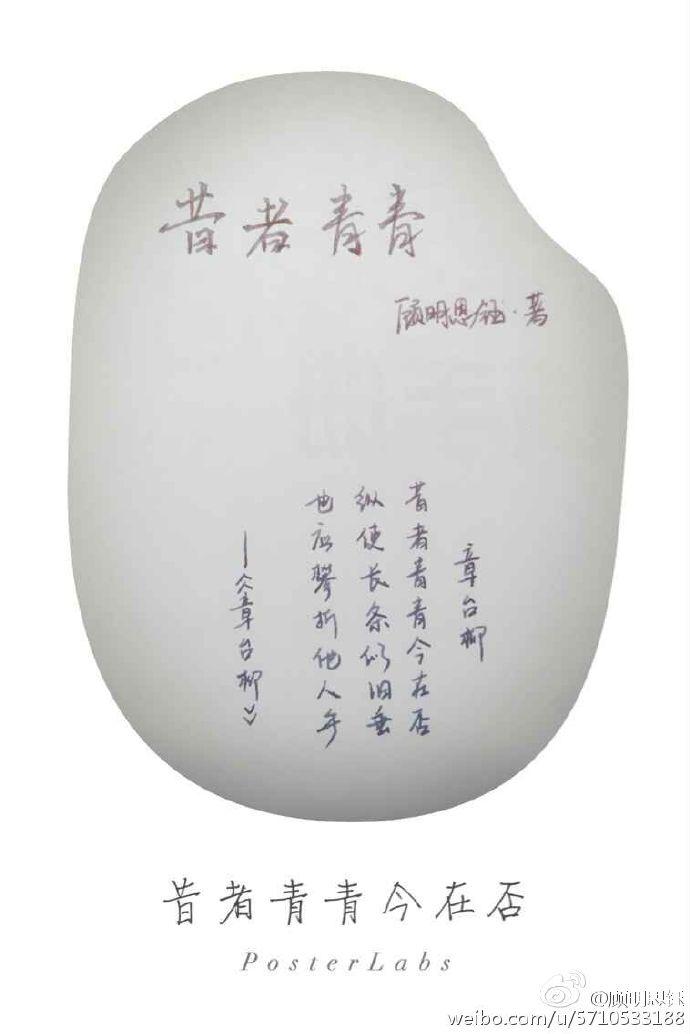 昔者青青
顾明思钰·著
章台柳
昔者青青今在否
纵使长条似旧垂
也应攀折他人手
—《章台柳》
昔者青青今在否
PosterLabs
@顾明思钰
weibo.com/u/5710533188